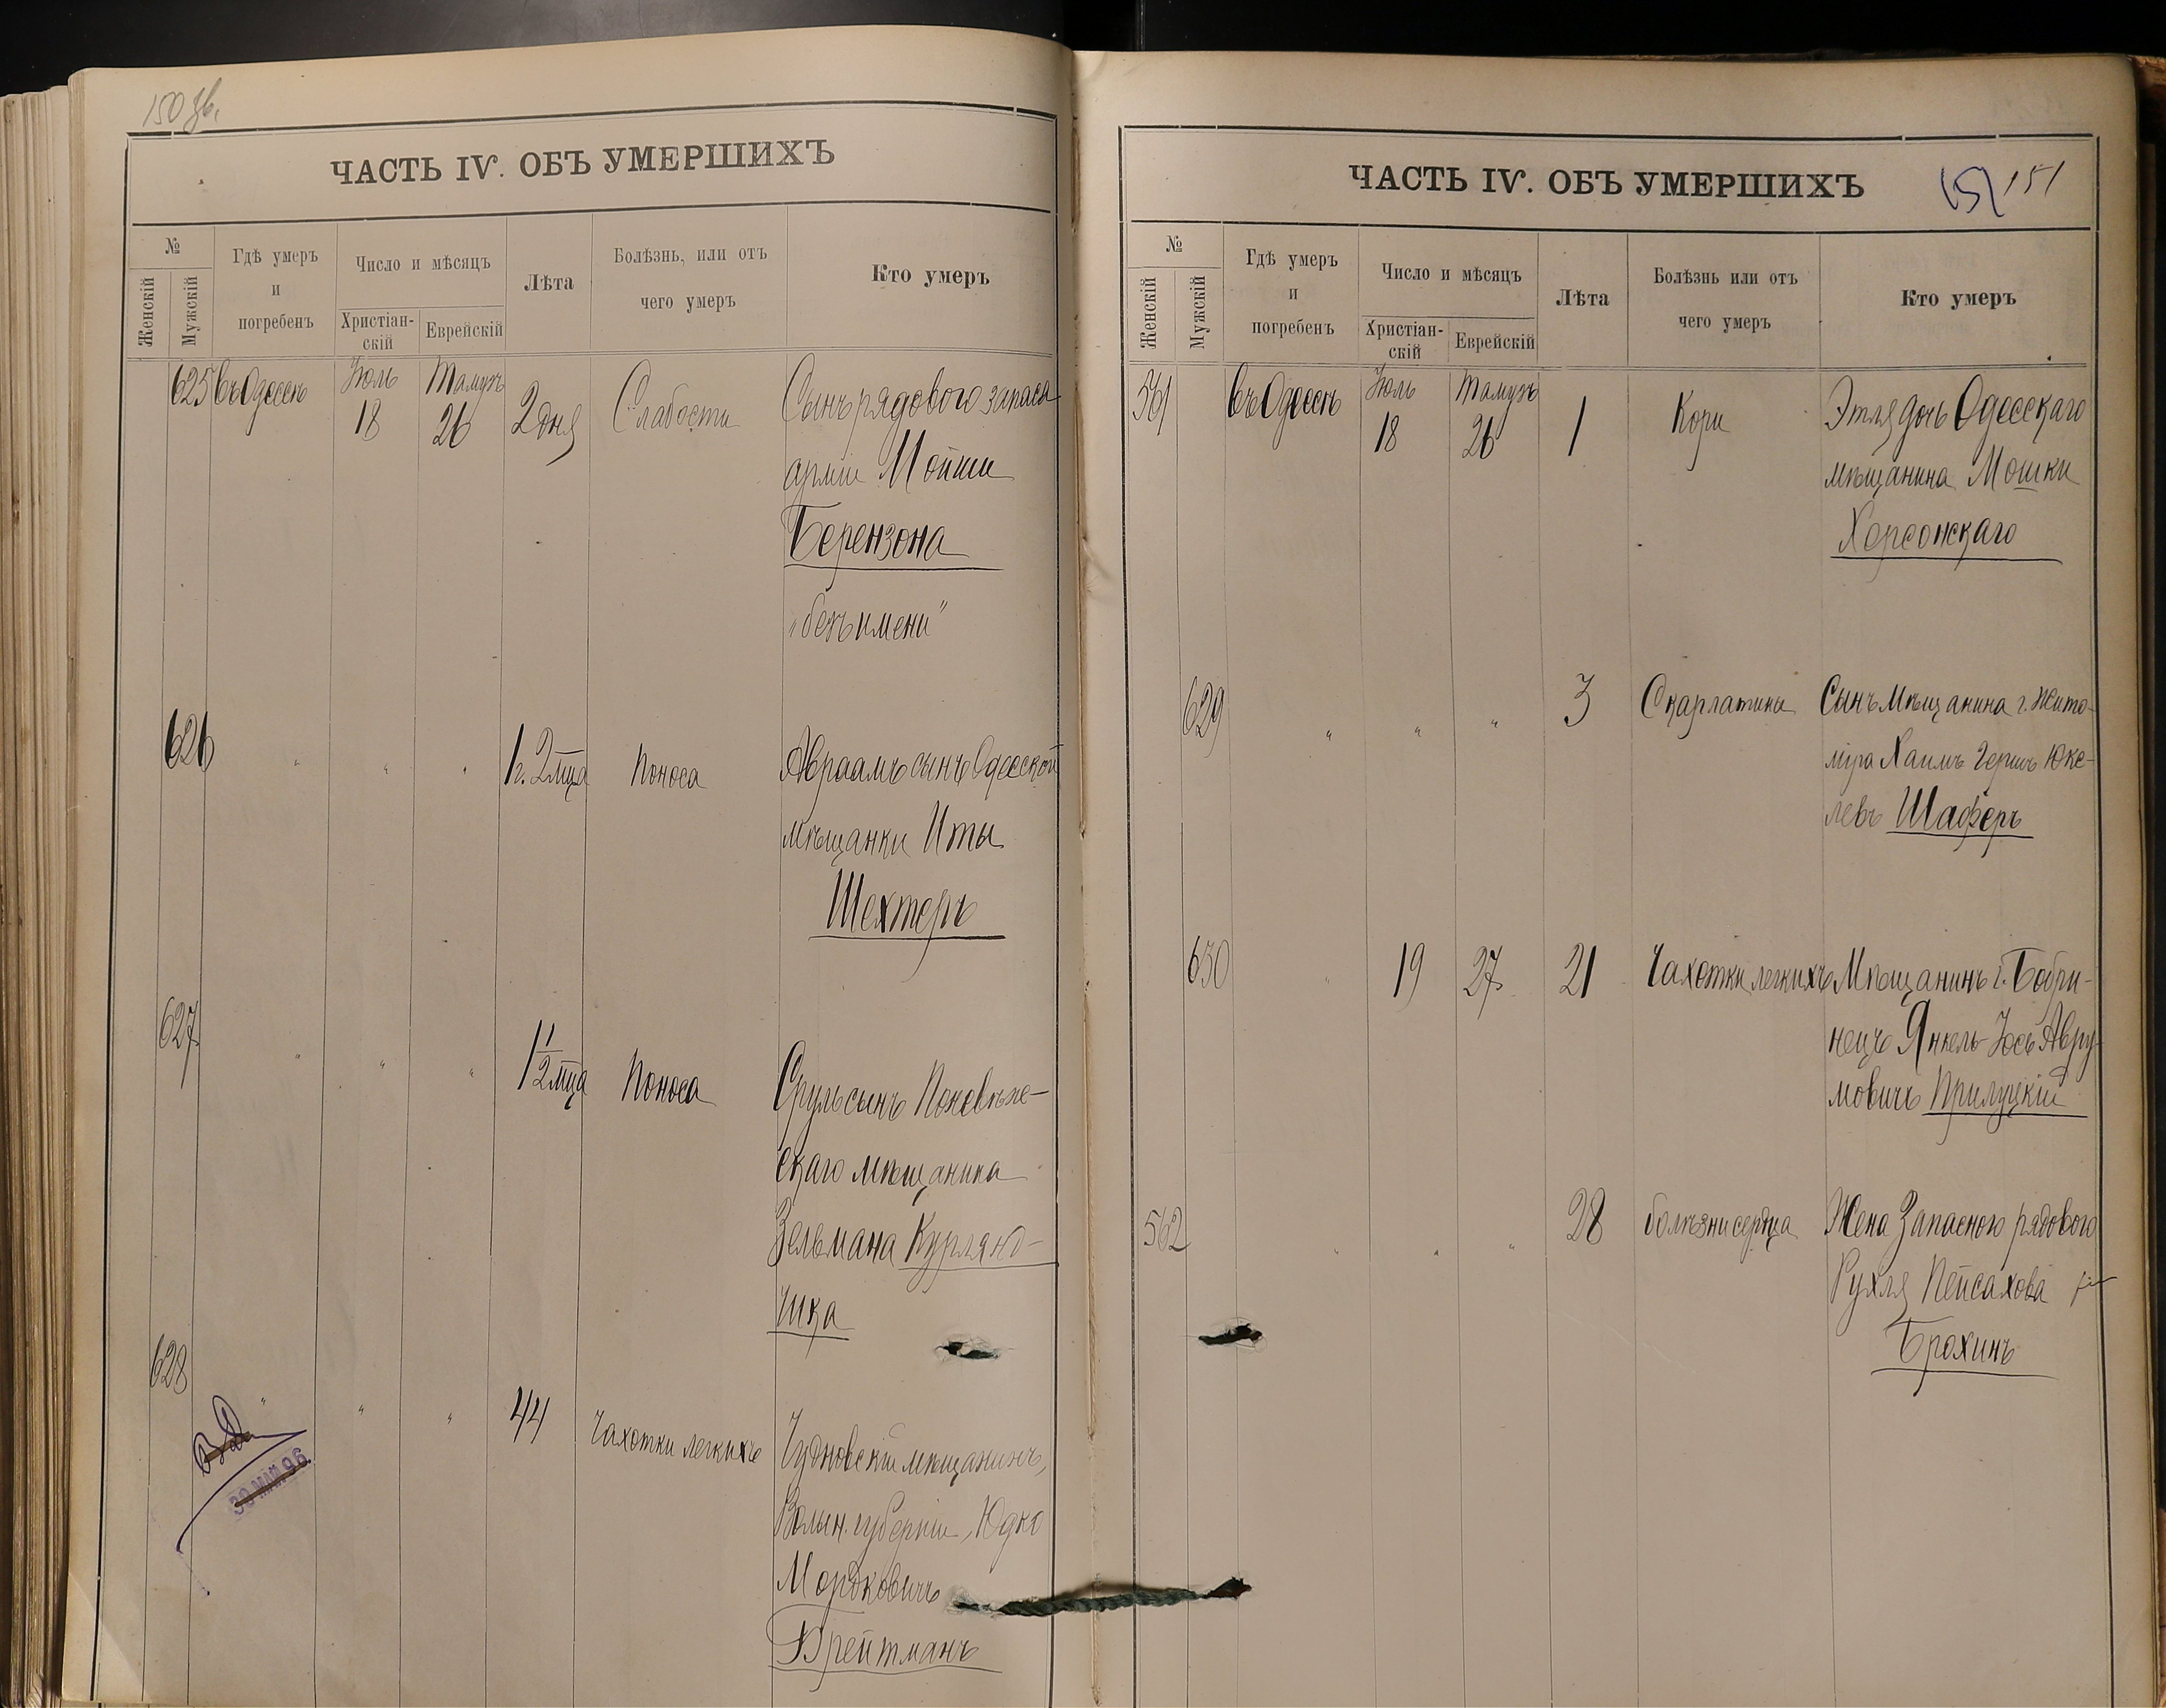 150 зв.
ЧАСТЬ IV. ОБЪ УМЕРШИХЪ
№
Женскій
Мужскій
Гдѣ умеръ
и
погребенъ
Число и мѣсяцъ
Христіан-
скій
Еврейскій
Лѣта
Болѣзнь, или отъ
чего умеръ
Кто умеръ
625 въ Одессѣ Іюль 18 Тамузъ 26 2 дня Слабости Сынъ рядового запаса
арміи Мойши
Берензона
"безъ имени"
626 " " " 1 г. 2 мца Поноса Авраамъ сынъ Одесской
мѣщанки Иты
Шехтеръ
627 " " " 1 1/2 мца Поноса Сруль сынъ Поневѣж-
скаго мѣщанина
Зельмана Курлянд-
чика
628 " " " 44 Чахотки легкихъ Чудновскій мѣщанинъ,
Волын. губерніи, Юдко
Мордковичъ
Брейтманъ
30 МАЙ. 96
ЧАСТЬ IV. ОБЪ УМЕРШИХЪ
151 151
№
Женскій
Мужскій
Гдѣ умеръ
и
погребенъ
Число и мѣсяцъ
Христіан-
скій
Еврейскій
Лѣта
Болѣзнь или отъ
чего умеръ
Кто умеръ
561 въ Одессѣ Іюль 18 Тамузъ 26 1 Кори Этля дочь Одесскаго
мѣщанина Мошки
Херсонскаго
629 " " " 3 Скарлатины Сынъ мѣщанина г. Жито-
міра Хаимъ Гершъ Юке-
левъ Шаферъ
630 " 19 27 21 Чахотки легкихъ Мѣщанинъ г. Бобри-
нецъ Янкель-Іось Авру-
мовичъ Прилуцкій
562 " " " 28 болѣзни сердца Жена Запасного рядового
Рухля Пейсахова
Брохинъ